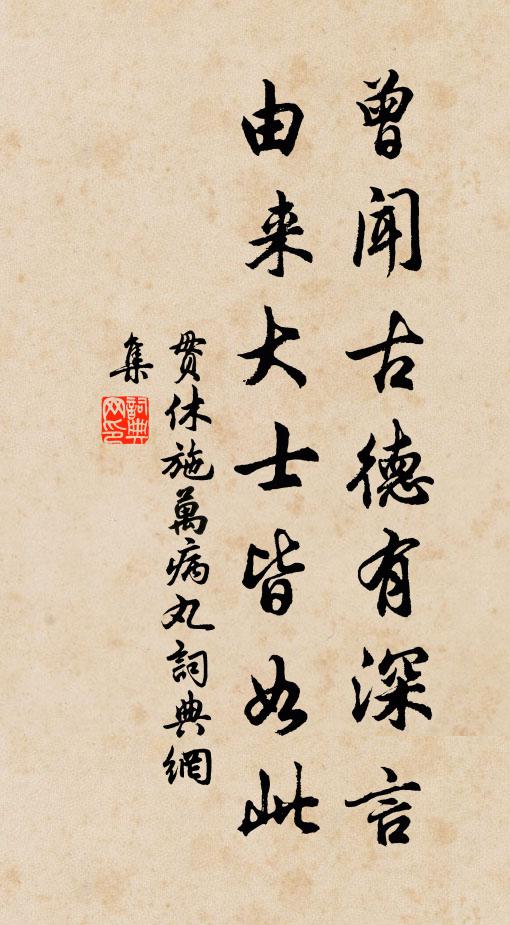 曾闻古德有深言
由来大士皆如此
贯休施萬病丸詞典網
集
詞典网印